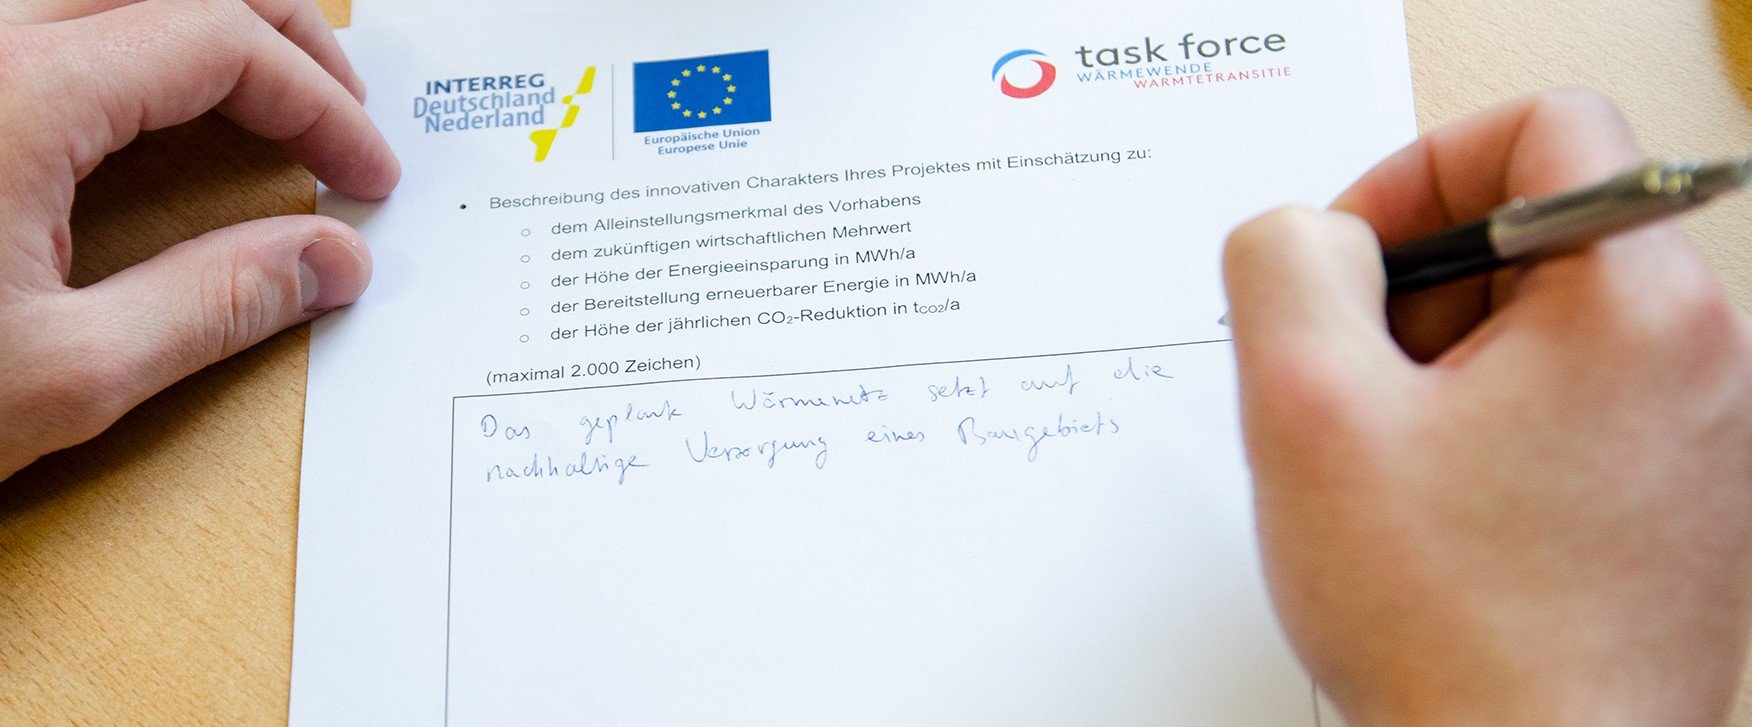 INTERREG
Deutschland
Nederland
Europäische Union
Europese Unie
task force
WÄRMEWENDE
WARMTETRANSITIE
• Beschreibung des innovativen Charakters Ihres Projektes mit Einschätzung zu:
○ dem Alleinstellungsmerkmal des Vorhabens
○ dem zukünftigen wirtschaftlichen Mehrwert
○ der Höhe der Energieeinsparung in MWh/a
○ der Bereitstellung erneuerbarer Energie in MWh/a
○ der Höhe der jährlichen CO₂-Reduktion in tCO2/a
(maximal 2.000 Zeichen)
Das geplante Wärmenetz setzt auf die
nachhaltige Versorgung eines Baugebiets